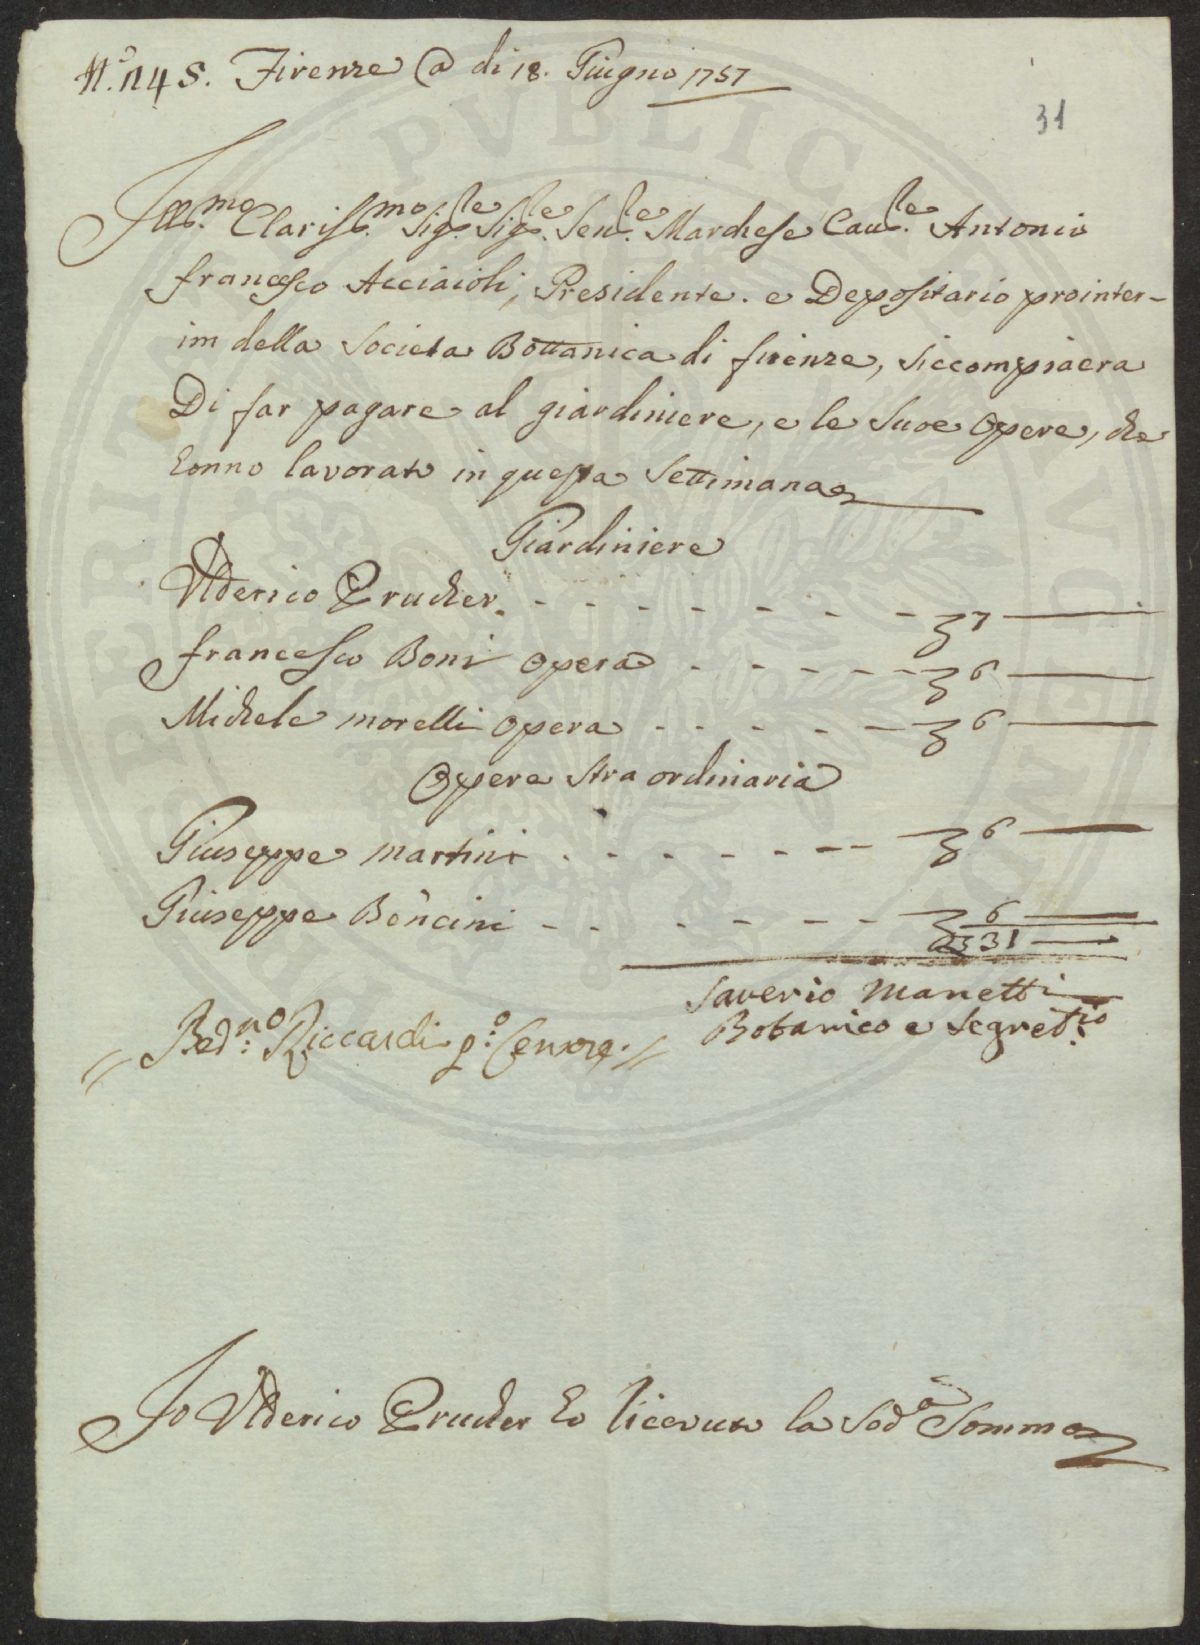 N.° 145. Firenze @ di 18. Giugno 1757
31
Ill.mo Clariss.mo Sig.le Sig.le Sen.le Marchese Cau.le Antonio
francesco Acciaioli, Presidente. e Depositario prointer-
im della Societa Bottanica di firenze, siccompiacra
Di far pagare al giardiniere, e le Suoe Opere, che
honno lavorato in questa Settimana
Giardiniere
Ulderico Prucher. - - - - - - - 7 —
francesco Boni opera - - - - - 6 —
Michele morelli opera - - - - - 6 —
Opere straordinaria
Giuseppe martini - - - - - - - 6 —
Giuseppe Bencini - - - - - - - 6 —
31 —
Saverio Manetti
Botanico e Segret.io
// Bed.no Riccardi p.° Censore. //
Io Ulderico Prucher ho riceuuto la Sod.a Somma